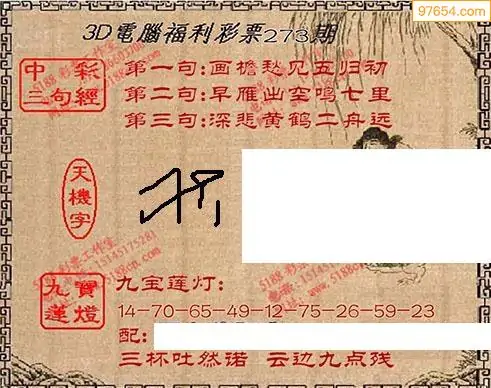 97654.com
3D電腦福利彩票273期
中彩
三句經
第一句:画檐愁见五归初
第二句:早雁出空鸣七里
第三句:深悲黄鹤二舟远
天機字
九寶
蓮燈
九宝莲灯:
14-70-65-49-12-75-26-59-23
配:
三杯吐然诺 云边九点残